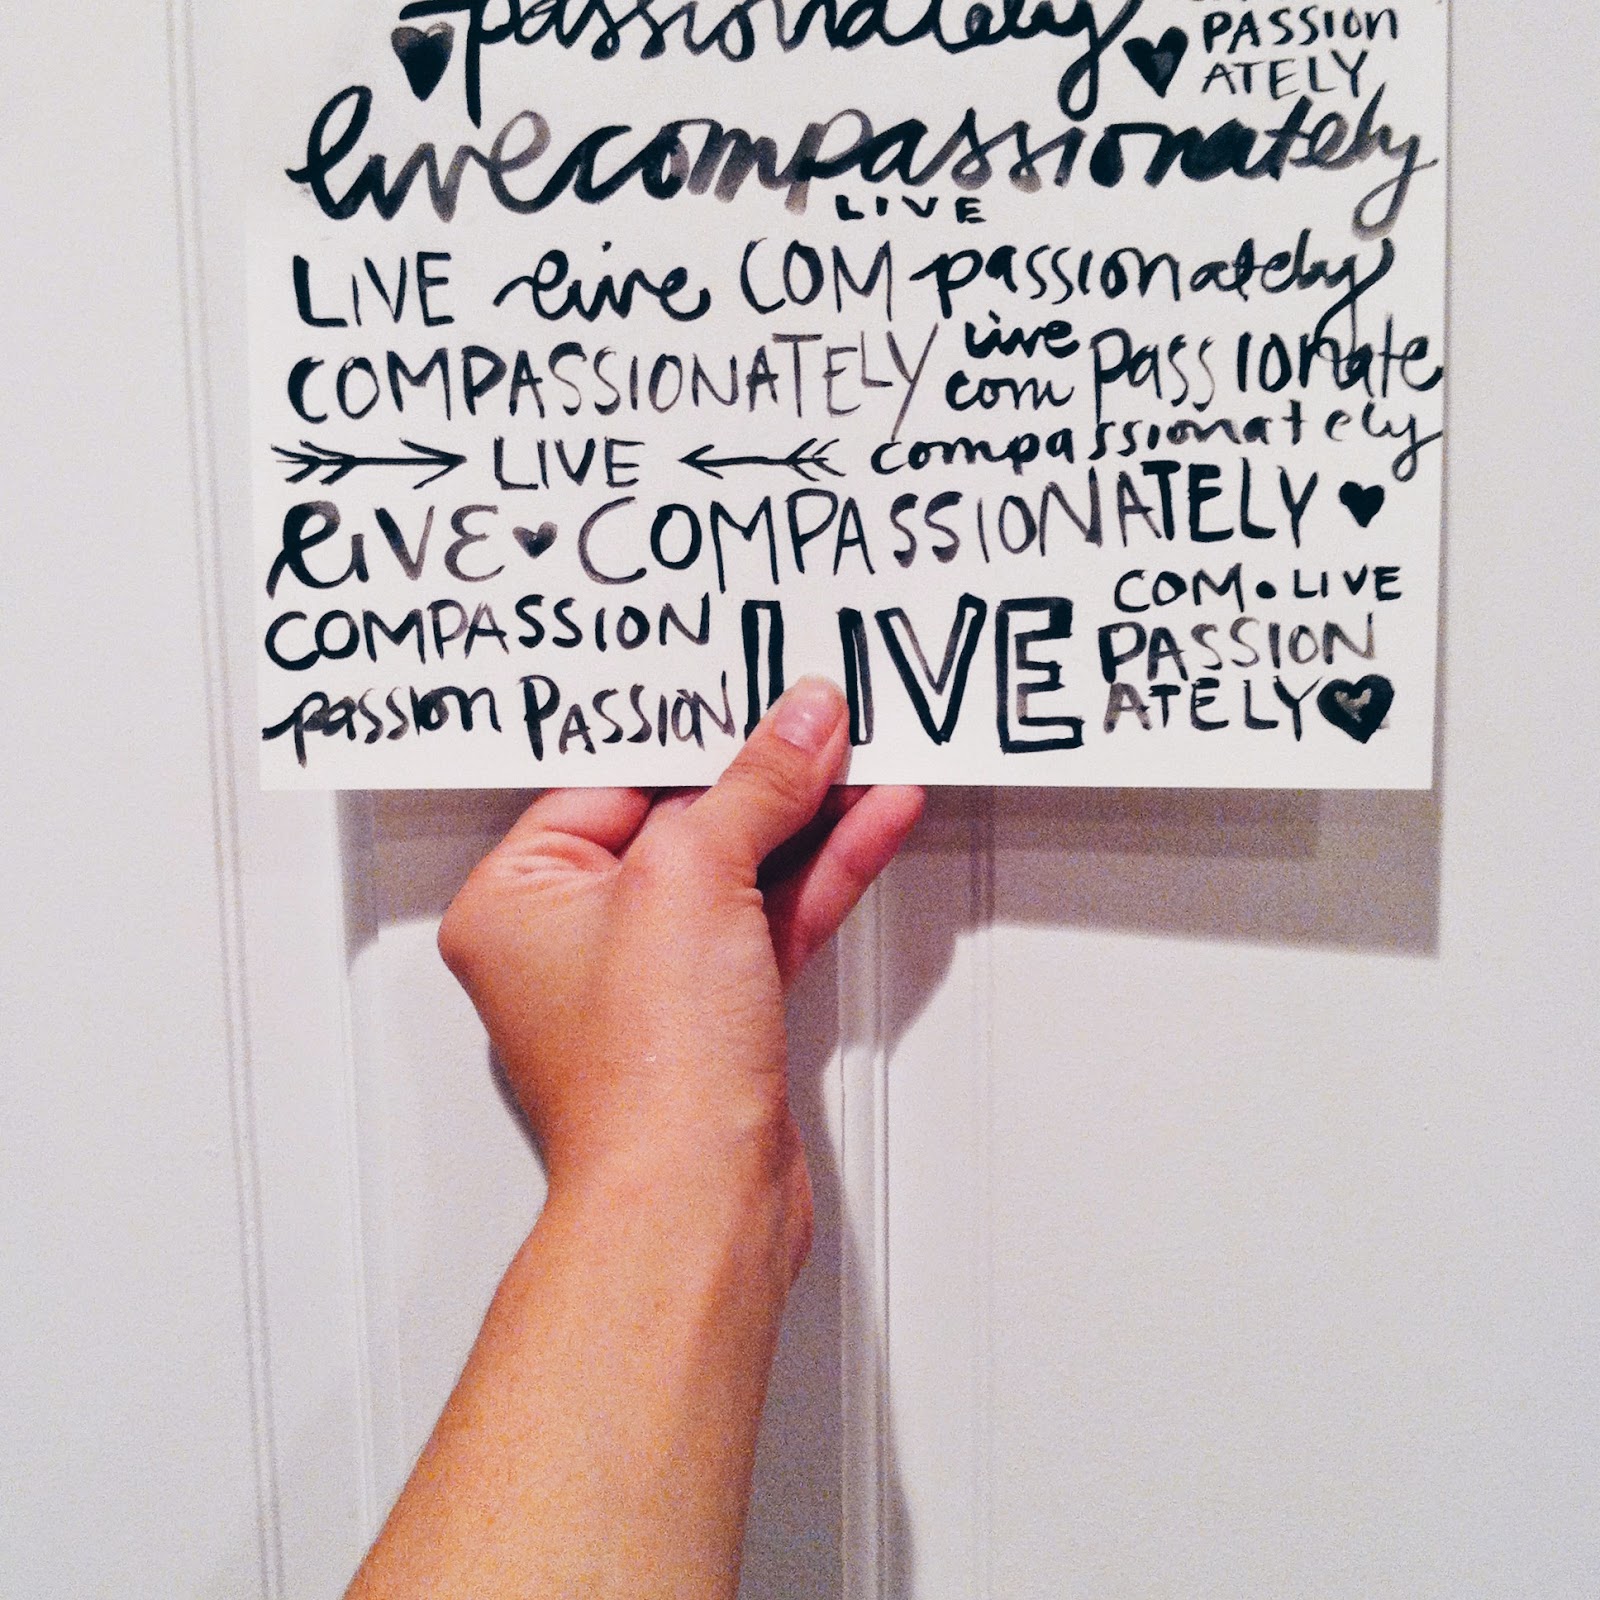 passionately
PASSION
ATELY
live compassionately
LIVE
LIVE live COM passionately
COMPASSIONATELY live com passionate
LIVE compassionately
LIVE COMPASSIONATELY
COMPASSION LIVE COM. LIVE
PASSION
passion PASSION ATELY